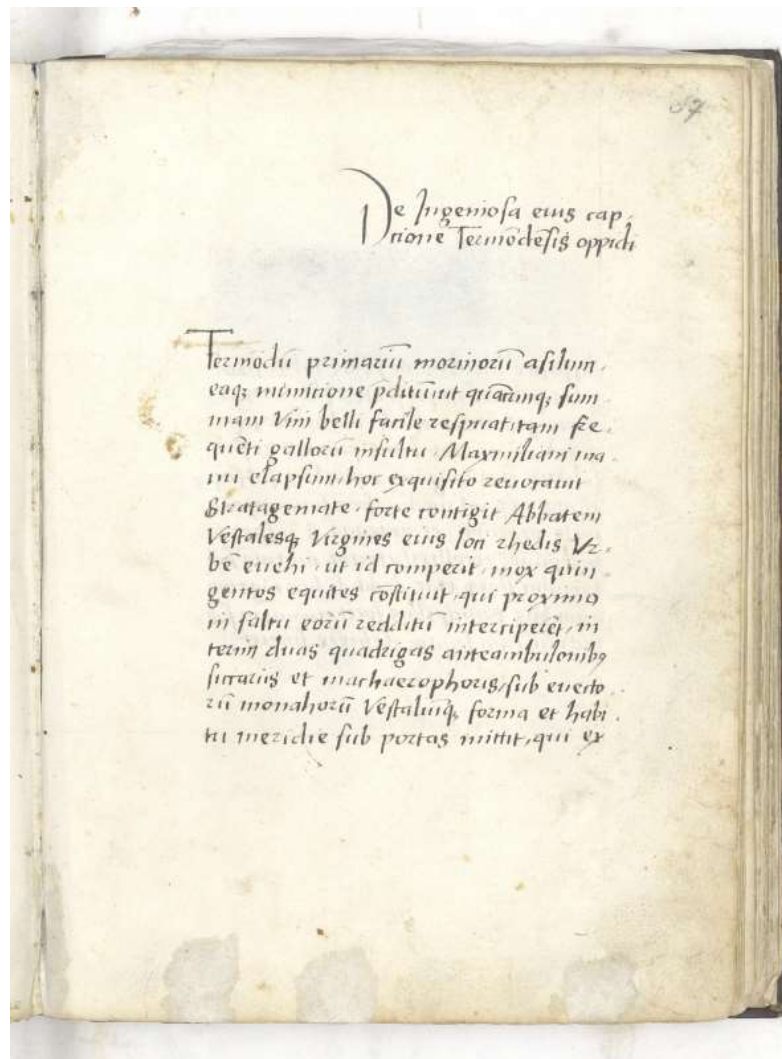 67
De Ingeniosa eius cap-
tione Termōdēsis oppidi
Termōdū primariū morinorū asilum,
eaq; municione p̄ditum, ut quācunq; sum-
mam Vim belli facile respuat, tam fre-
quēti gallorū insultu, Maxmiliani ma-
nu elapsum, hoc exquisito reuocauit
Stratagemate, forte contigit Abbatem
Vestalesq; Virgines eius loci rhedis Vr-
bē euehi, ut id comperit, mox quin-
gentos equites cōstituit, qui proximo
in saltu eorū redditū interciperēt, in
terim duas quadrigas anteambulonibꝯ
siccariis et machaerophoris, sub euecto-
rū monahorū Vestaliūq; forma et habi-
tu meridie sub portas mittit, qui ex